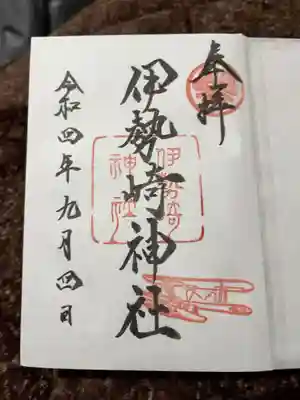 奉拝
伊勢崎神社
令和四年九月四日
伊勢崎
神社